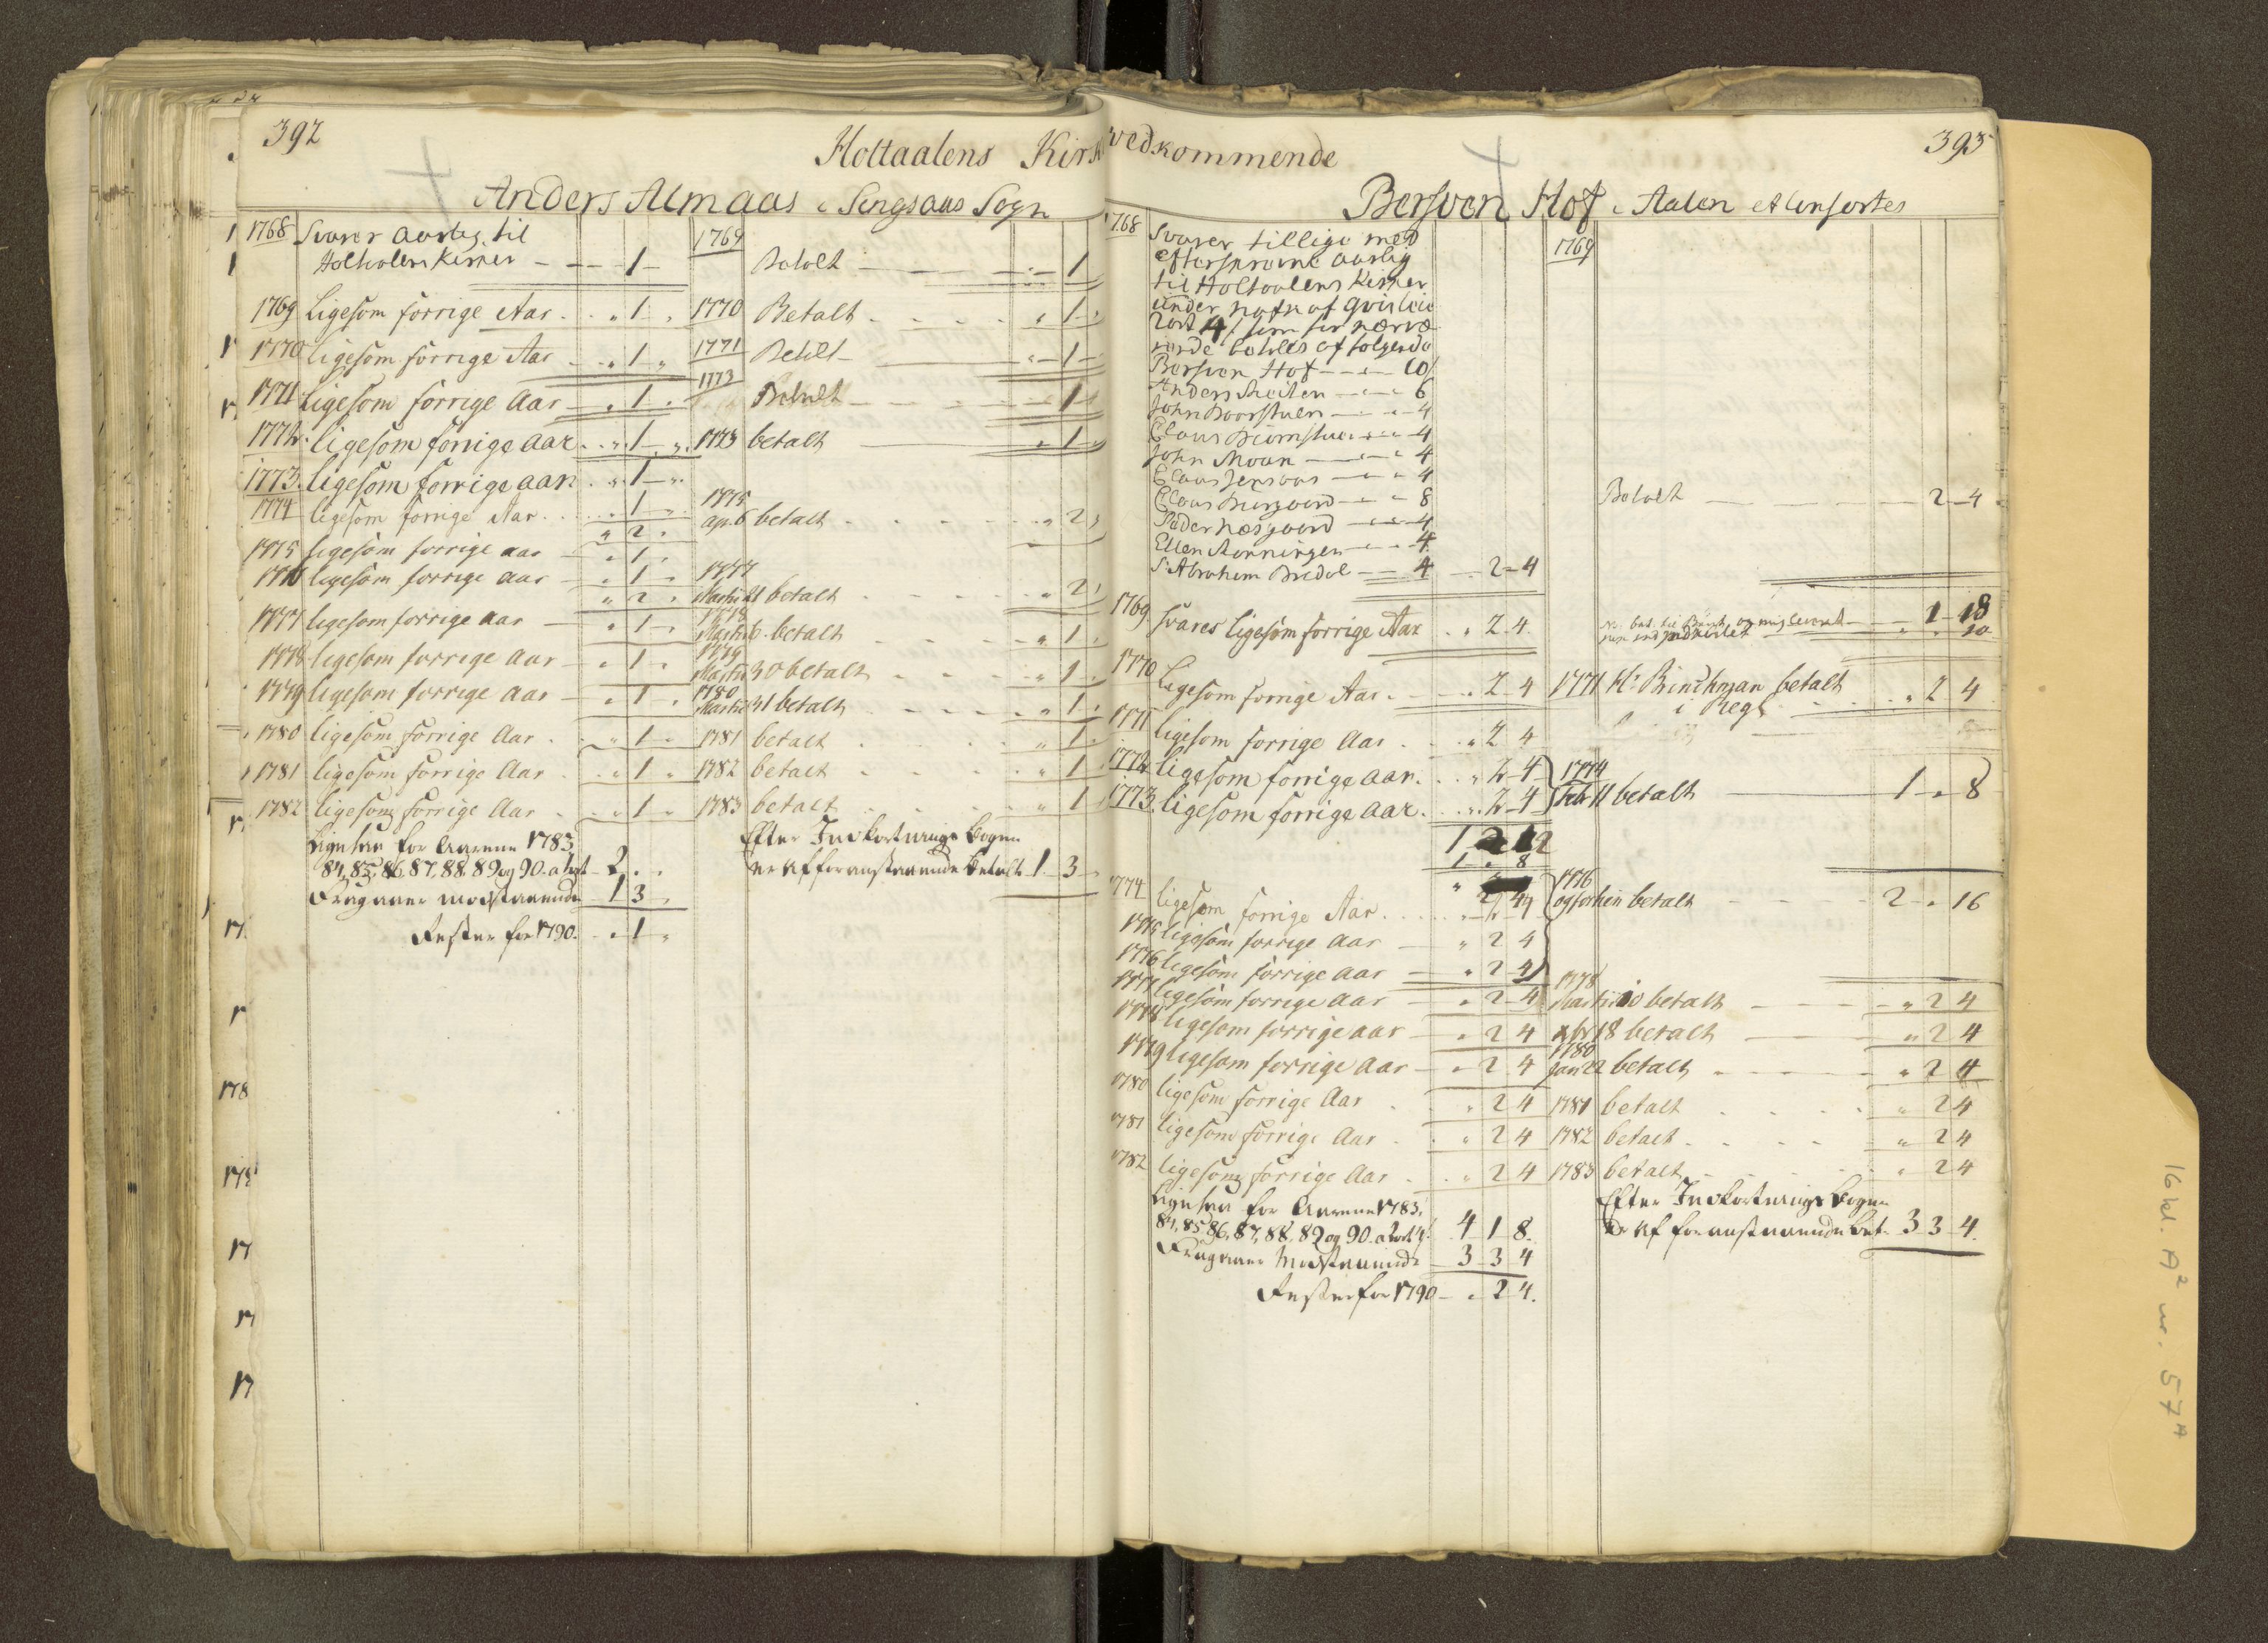 392
Holtaalens Kirk
Anders Almaas i Singsaas Sogn
1768 Svarer aarlig til
Holtaalens Kirker - - 1 -
1769 Betalt - 1
1769 Ligesom forrige Aar . . " 1 .
1770 Betalt . . . . " 1 .
1770 ligesom forrige Aar . . " 1 "
1771 Betalt - " 1 -
1771 ligesom forrige Aar - " 1 .
1773 Betalt - 1
1772. ligesom forrige Aar . . " 1 ".
1773 betalt " 1 "
1773. ligesom forrige aar . " 1 ".
1774 ligesom forrige Aar . . . 1 .
" 2 .
1775
apr. 6 betalt . . . . . " 2 "
1775 ligesom forrige aar - " 1 .
1776 ligesom forrige aar - " 1 .
" 2 "
1777
Martii 21 betalt - - - - " 2 "
1777 ligesom forrige aar - " 1 "
1778
Martii 6. betalt - - - " 1 .
1778 ligesom forrige aar - " 1 "
1779
Martii 30 betalt - - - " 1 .
1779 ligesom forrige aar - " 1 .
1780
Martii 31 betalt - - - " 1 .
1780 ligesom forrige Aar . . " 1 "
1781 betalt . . . . " 1 .
1781 ligesom forrige Aar . . " 1 "
1782 betalt . . . . " 1 .
1782 ligesom forrige Aar . . " 1 "
1783 betalt . . . . " 1
Ligesaa for Aarene 1783,
84, 85, 86, 87, 88, 89 og 90. a 1 ort 2 . .
Fragaaer modstaaende 1 3 "
Rester for 1790. . " 1 "
Efter Indkortnings Bogen
er af foranstaaende betalt 1. 3 -
vedkommende
393
Bersven Hof i Aalen
1768 Svarer tillige med
efterskrevne aarlig
til Holtaalens Kirker
under nafn af
2 ort 4 / som for nærvæ-
rende betales af følgende
Bersven Hof - - - 10/
Anders - - - 6
John - - - 4
Claus - - - 4
John Moan - - - 4
Claus - - - 4
Claus - - - 8
Peder Næsgaard - - - 4
Ellen - - - 4
Sr. Abraham Bredal - - 4 - 2 - 4
1769
Betalt - 2 - 4
1769 svares ligesom forrige Aar . . " 2 4.
1 - 18
10
1770 Ligesom forrige Aar . - " 2 4
1771 Hr. Brinchman betalt
i Regt . . . " 2 4
1771 ligesom forrige Aar . . " 2 4
1772 ligesom forrige aar . . " 2 4
1773. ligesom forrige aar . . " 2 4
1774
Febr 11 betalt - 1 " 8
1 " 8
1774 ligesom forrige Aar . . . " 2 4
1775 ligesom forrige aar - " 2 4
1776 ligesom forrige aar - " 2 4
1776
og forhin betalt - - - 2 " 16
1777 ligesom forrige aar - " 2 4
1778
Martii 10 betalt - - - " 2 4
1778 ligesom forrige aar - " 2 4
xbr 18 betalt - - " 2 4
1779 ligesom forrige aar - " 2 4
1780
Jan 22 betalt - - - " 2 4
1780 ligesom forrige Aar . . " 2 4
1781 betalt . . . . " 2 4
1781 ligesom forrige Aar . . " 2 4
1782 betalt . . . . " 2 4
1782 ligesom forrige Aar . . " 2 4
1783 betalt . . . . " 2 4
Ligesaa for Aarene 1783,
84, 85, 86, 87, 88, 89 og 90. a 2 ort 4/. 4 1 8.
Fragaaer Modstaaende 3 3 4
Rester for 1790 - " 2 4.
Efter Indkortnings Bogen
er af foranstaaende bet. 3 3 4.
16 kl. A² nr. 57ᴬ